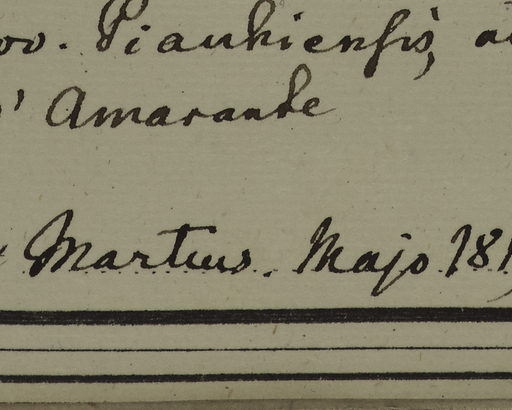 ov. Piauhiensis, a
' Amarante
Martius. Majo 181